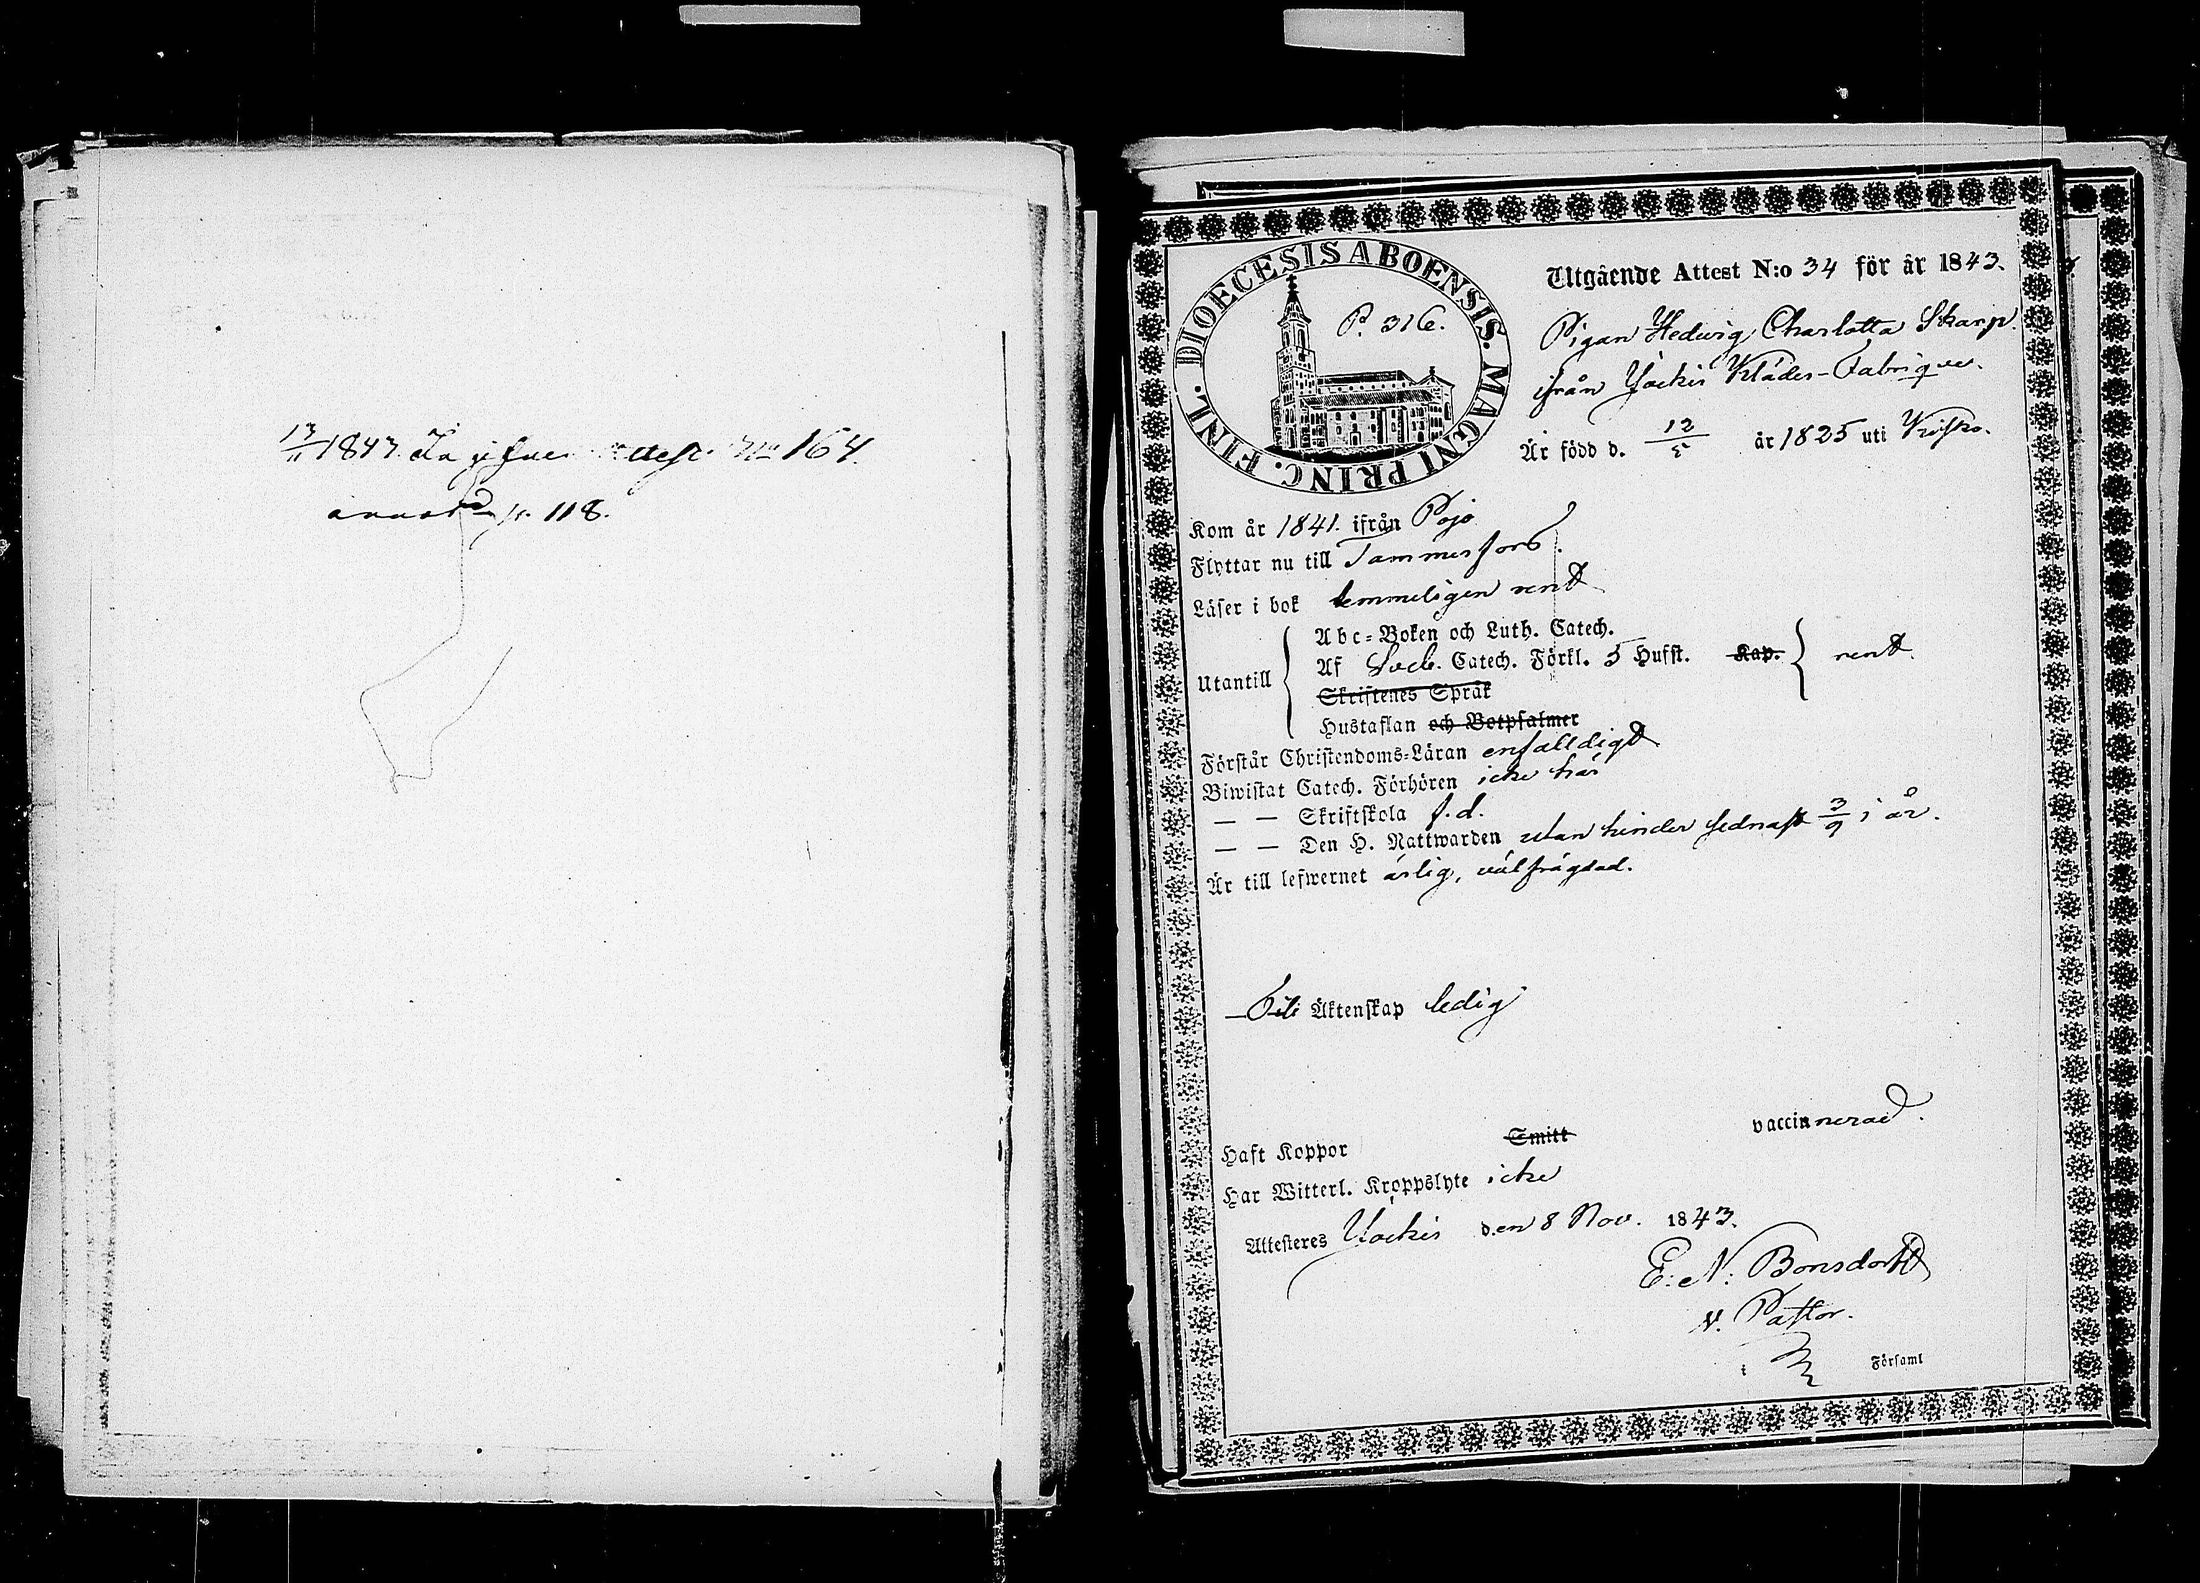 13/11 1843. attest N:o 164.
annot. p. 118.
DIOECESIS ABOENSIS. MAGNI PRINC. FINL.
P. 316.
Utgående Attest N:o 34 för år 1843.
Pigan Hedwig Charlotta Skarp
ifrån Jockis Klädes-Fabrique.
Är född d. 12/5 år 1825 uti Kisko.
Kom år 1841. ifrån Pojo
Flyttar nu till Tammerfors.
Läser i bok temmeligen rent
Utantill
Abc-Boken och Luth. Catech.
Af Sveb. Catech. Förkl. 5 Hufst. Kap. rent.
Skriftenes Språk
Hustaflan och Botpsalmer
Förstår Christendoms-Läran enfaldigt
Biwistat Catech. Förhören icke här
— — Skriftskola f.d.
— — Den H. Nattwarden utan hinder sednast 3/9 i år.
Är till lefwernet ärlig, välfrägdad.
Till Äktenskap ledig
Haft Koppor Smitt vaccinnerad.
Har Witterl. Kroppslyte icke
Attesteres Jockis den 8 Nov. 1843.
E: N: Bonsdorff
v. Pastor.
i Församl